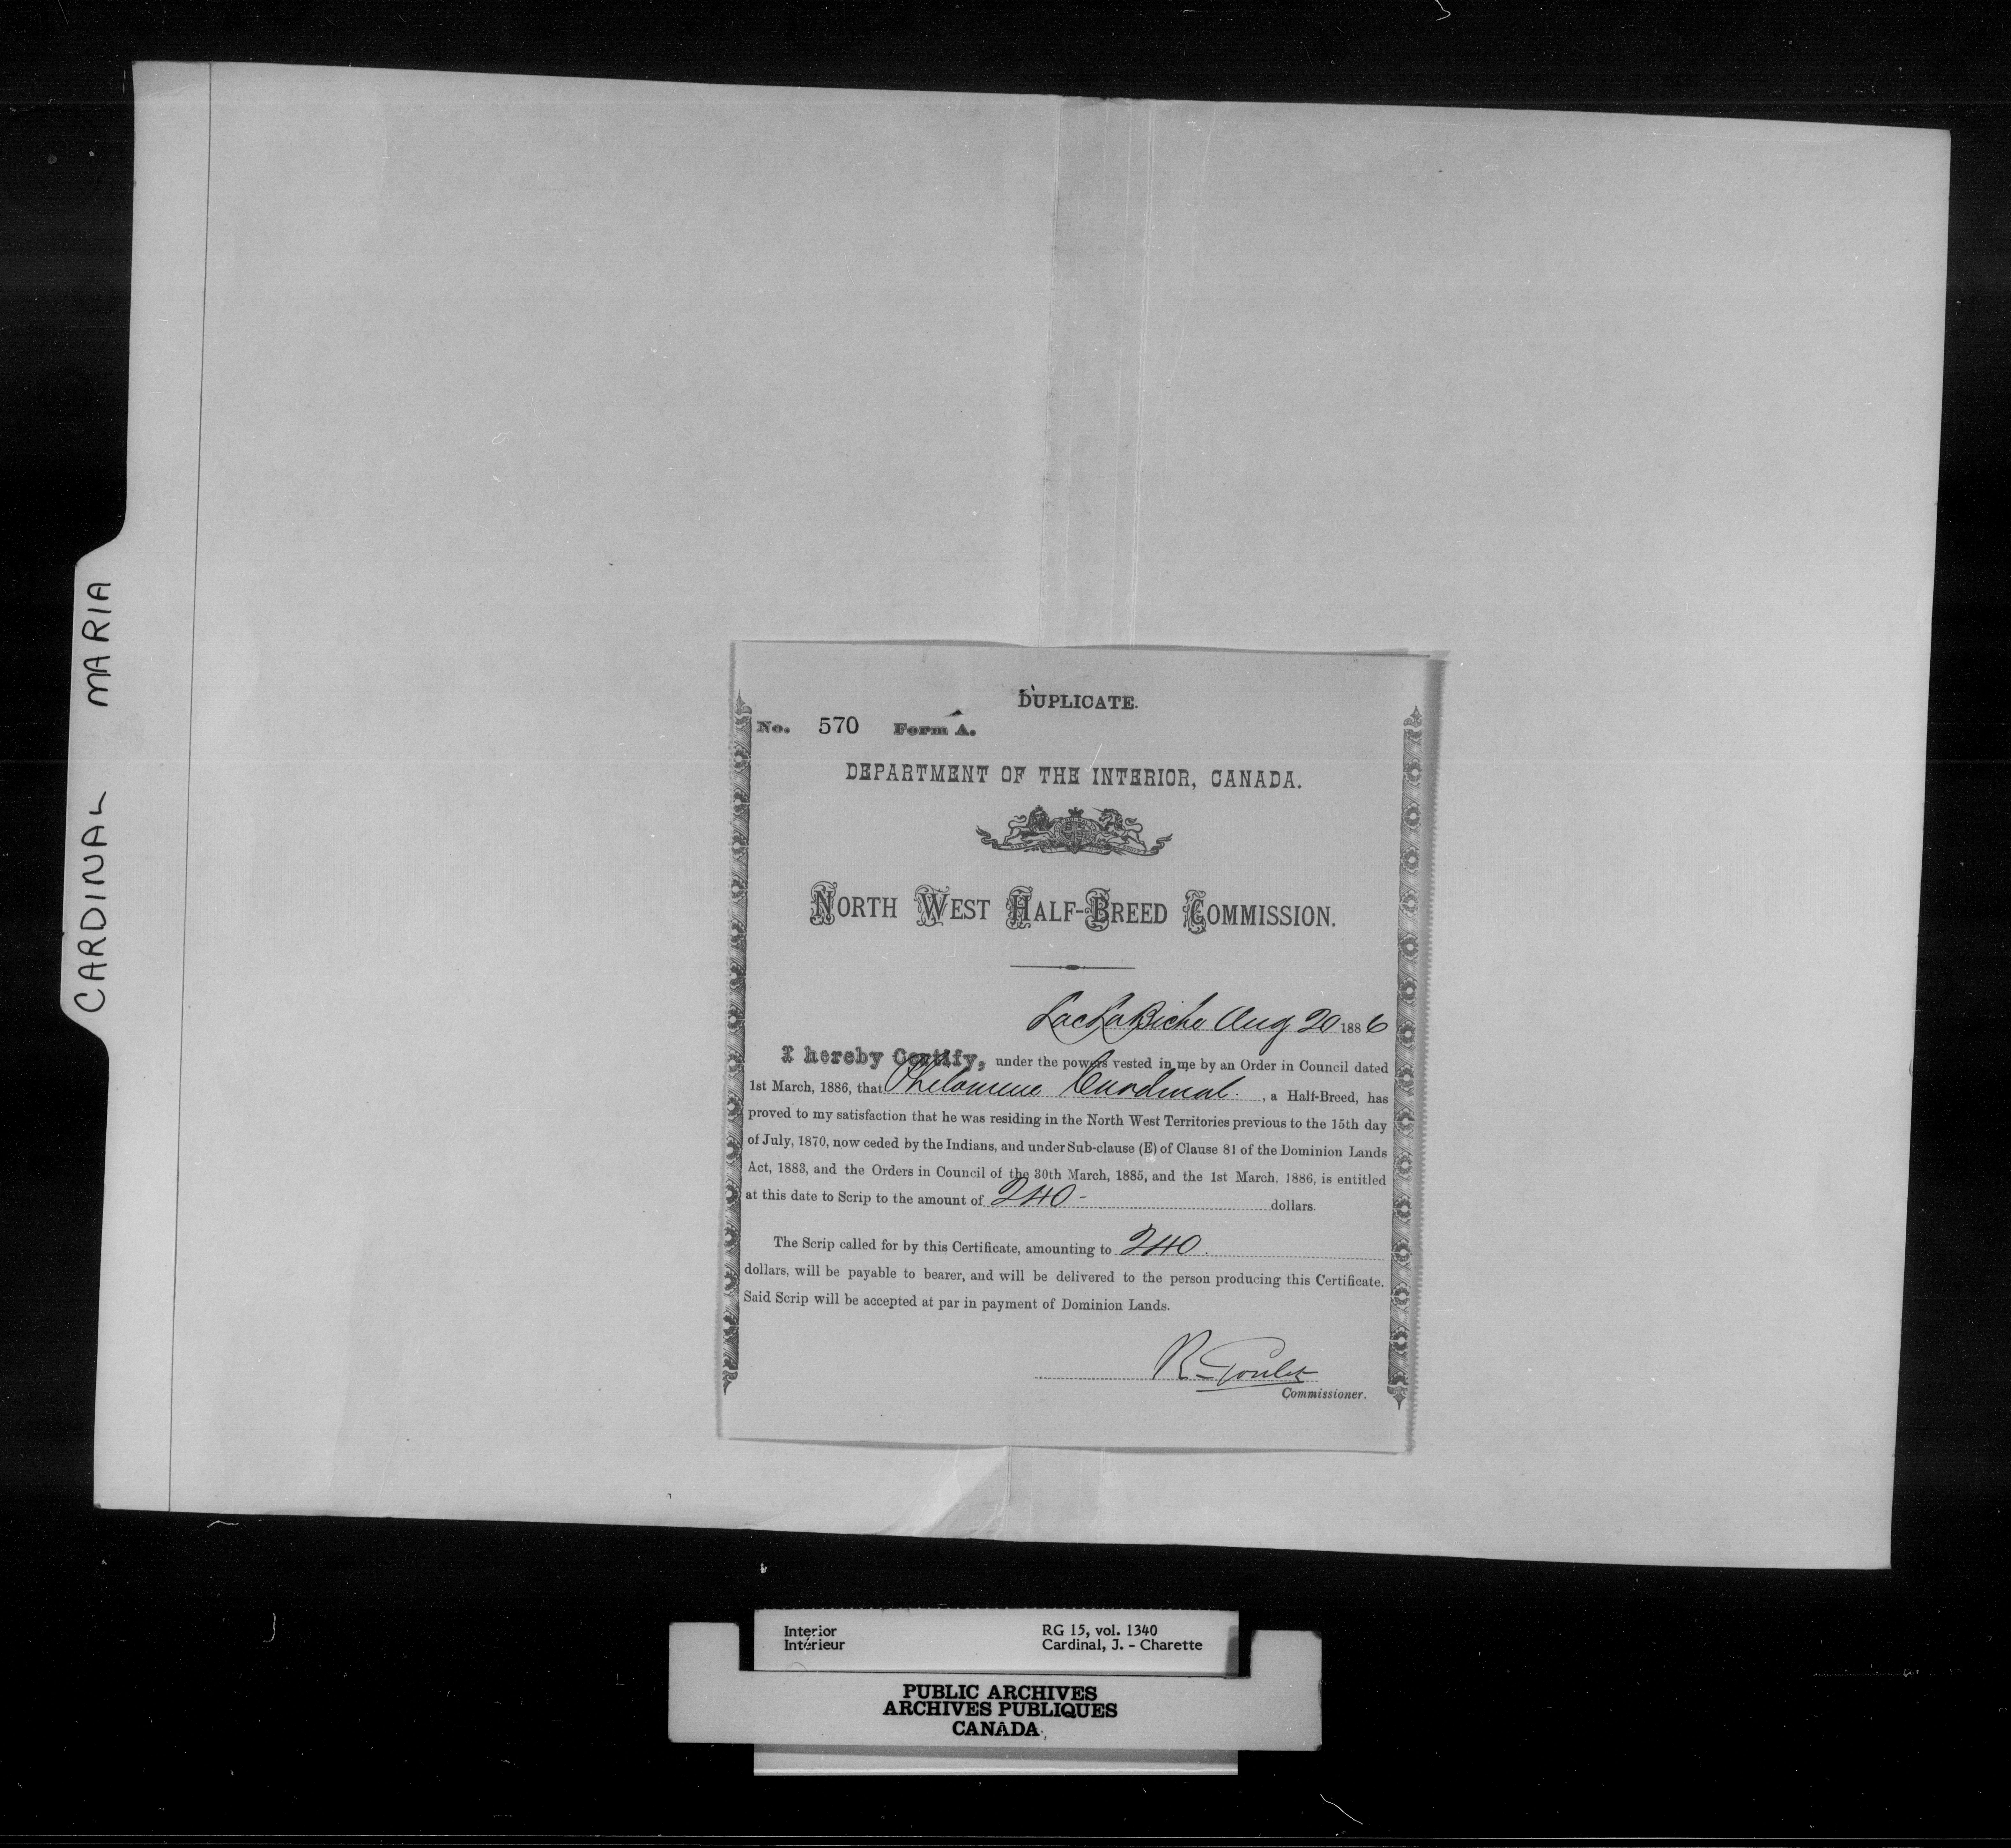 CARDINAL MARIA
DUPLICATE.
No. 570 Form A.
DEPARTMENT OF THE INTERIOR, CANADA.
NORTH WEST HALF-BREED COMMISSION.
Lac La Biche Aug 20 1886
I hereby Certify, under the powers vested in me by an Order in Council dated
1st March, 1886, that Philomene Cardinal. , a Half-Breed, has
proved to my satisfaction that he was residing in the North West Territories previous to the 15th day
of July, 1870, now ceded by the Indians, and under Sub-clause (E) of Clause 81 of the Dominion Lands
Act, 1883, and the Orders in Council of the 30th March, 1885, and the 1st March, 1886, is entitled
at this date to Scrip to the amount of 240 - dollars.
The Scrip called for by this Certificate, amounting to 240.
dollars, will be payable to bearer, and will be delivered to the person producing this Certificate.
Said Scrip will be accepted at par in payment of Dominion Lands.
R. Goulet
Commissioner.
Interior RG 15, vol. 1340
Intérieur Cardinal, J. - Charette
PUBLIC ARCHIVES
ARCHIVES PUBLIQUES
CANADA